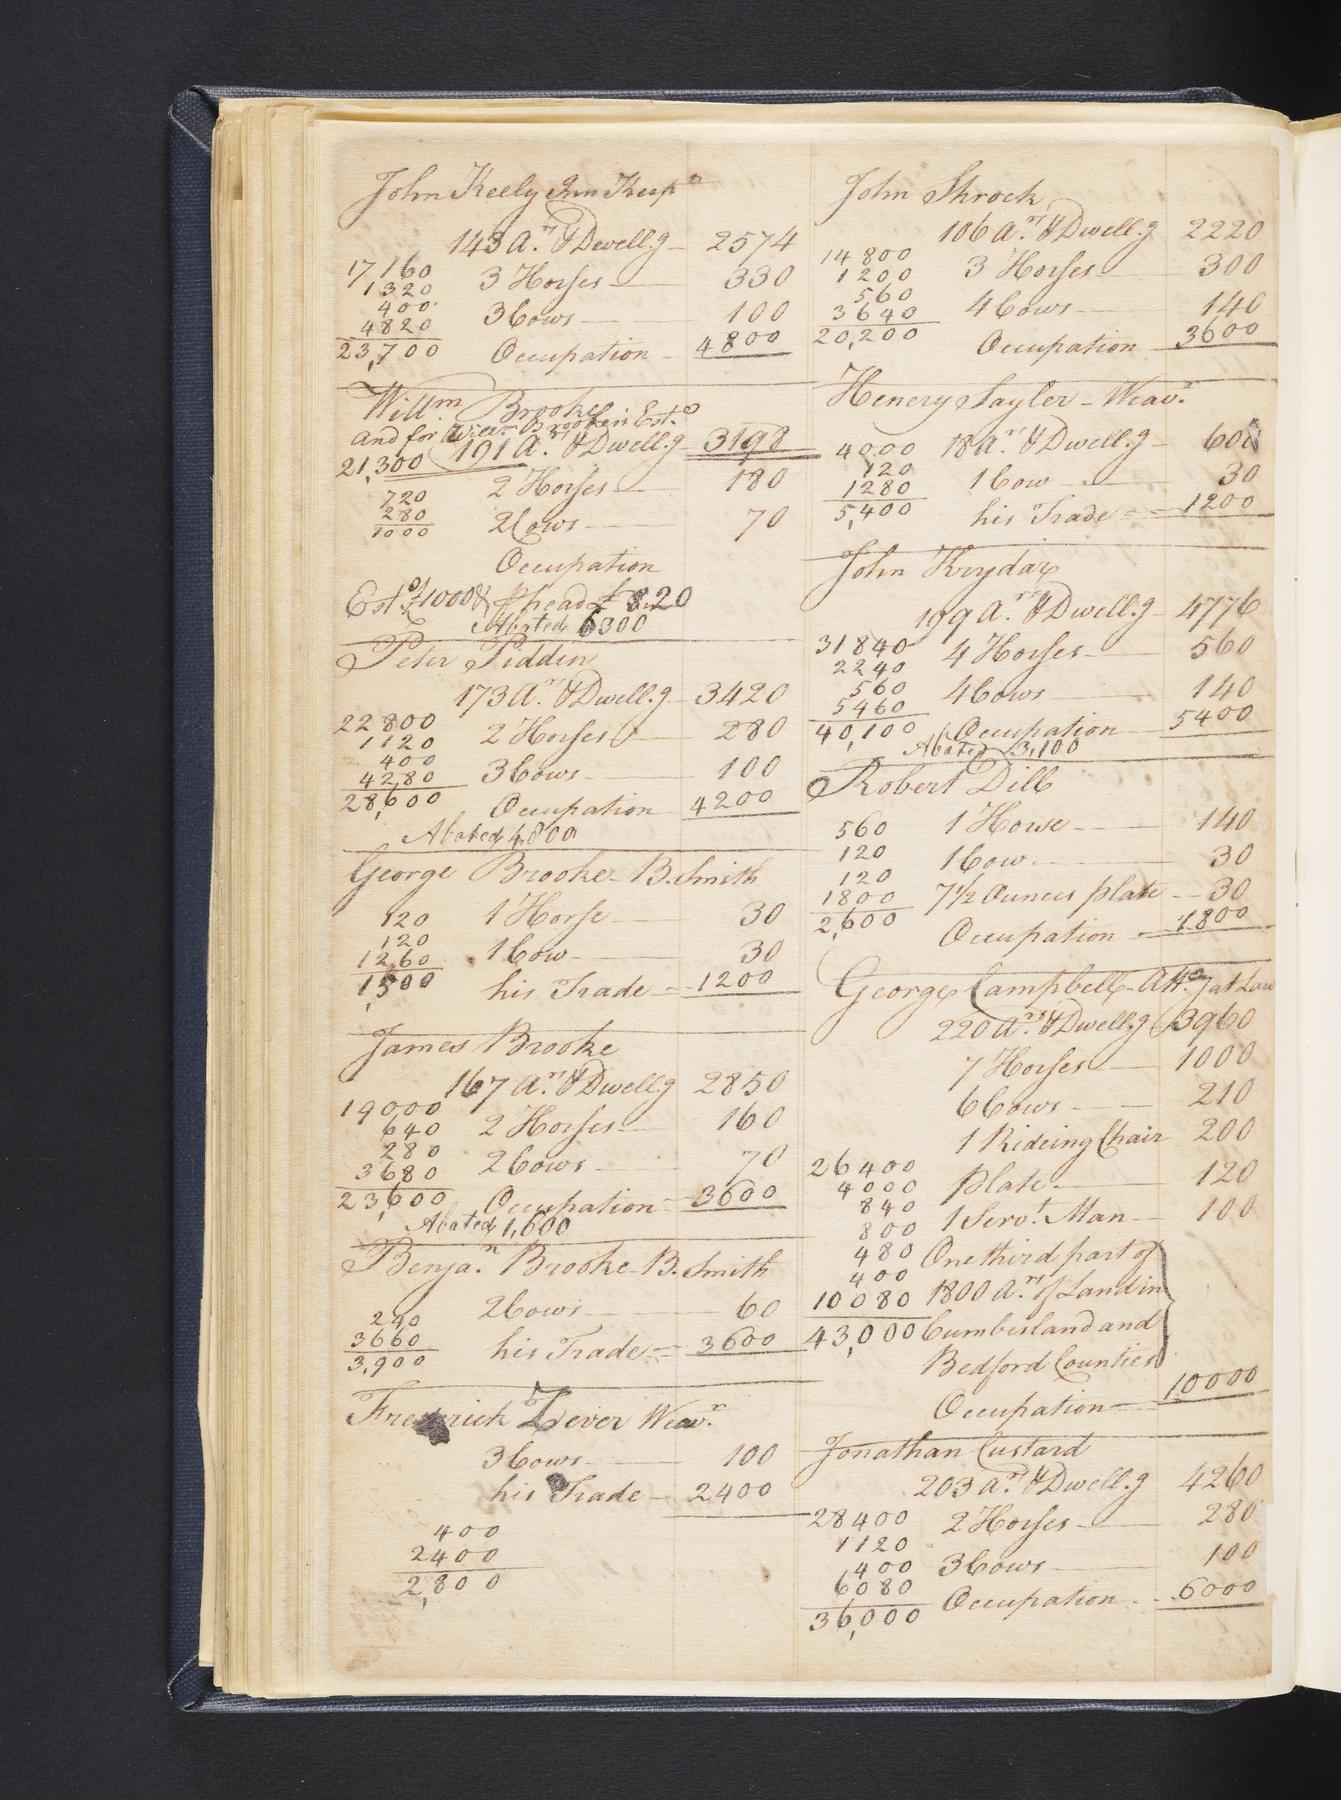 John Keely Inn Keepr
143 A.rs & Dwell.g 2574
17160 3 Horses 330
1320
400 3 Cows 100
4820
23,700 Occupation 4800
Willm Brooke
and for Willm Brooke's Est.
21,300 191 A.rs & Dwell.g 3198
720 2 Horses 180
280 2 Cows 70
1000
Occupation
Abated 6300
Peter Piddin
173 A.rs & Dwell.g 3420
22800
1120 2 Horses 280
400 3 Cows 100
4280
28,600 Occupation 4200
Abated 4,800
George Brooke B. Smith
120 1 Horse 30
120 1 Cow 30
1260
1,500 his Trade 1200
James Brooke
167 A.rs & Dwell.g 2850
19000
640 2 Horses 160
280 2 Cows 70
3680
23,600 Occupation 3600
Abated 1,600
Benja.n Brooke B. Smith
240 2 Cows 60
3660 his Trade 3600
3,900
Frederick Lever Weav.r
3 Cows 100
his Trade 2400
400
2400
2,800
John Shrock
106 A.rs & Dwell.g 2220
14800
1200 3 Horses 300
560 4 Cows 140
3640
20,200 Occupation 3600
Henery Sayler Weav.r
4000 18 A.rs & Dwell.g 600
120 1 Cow 30
1280
5,400 his Trade 1200
John Krydar
199 A.rs & Dwell.g 4776
31840 4 Horses 560
2240
560 4 Cows 140
5460
40,100 Occupation 5400
Abated 3,100
Robert Dill
560 1 Horse 140
120 1 Cow 30
120 7 1/2 Ounces plate 30
1800
2,600 Occupation 1800
George Campbell Atto.y at Law
220 A.rs & Dwell.g 3960
7 Horses 1000
6 Cows 210
1 Rideing Chair 200
26400 Plate 120
4000
840 1 Servt. Man 100
800
480 One third part of
400
10080 1800 A.rs of Land in
43,000 Cumberland and
Bedford Counties
Occupation 10000
Jonathan Custard
203 A.rs & Dwell.g 4260
28400 2 Horses 280
1120
400 3 Cows 100
6080 Occupation 6000
36,000